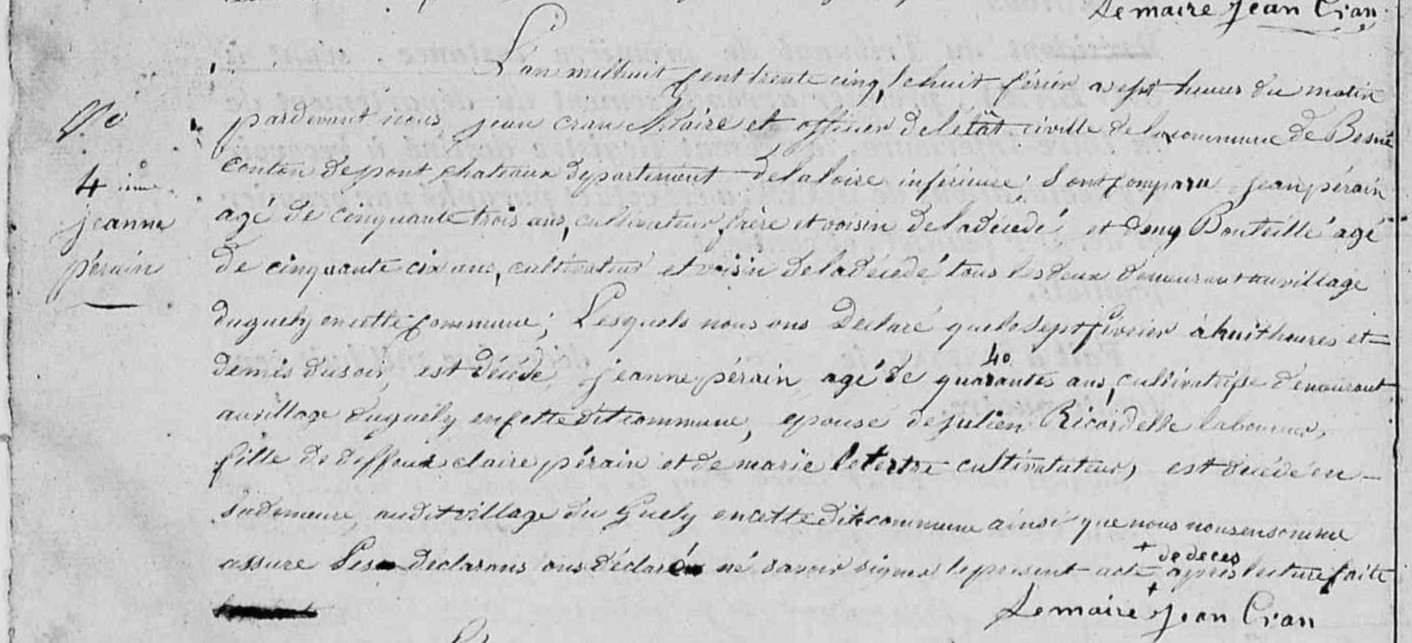 Lemaire Jean Cran
L'an mil huit sent trente cinq, le huit février a sept heures du matin
No
par devant nous jean cran Maire et officier de letât civille de la commune de Besné
4 ime.
conton de pont chateaux departement de la loire inferieure; sont comparu jean pérain
jeanne
agé de cinquante trois ans, cultivateur frère et voisin de la décédé et deny Bouteillé agé
pérain
de cinquante cix ans, cultivateur et voisin de la décédé tous les deux demeurant au village
duguely en cette commune; Lesquels nous ons déclaré que le sept février à huit heures et
demis du soir, est décédé jeanne pérain agé de quarante 40 ans, cultivatrise demeurant
au village duguély en sette dit commune, épouse de julien Ricordelle laboureur,
fille de deffeux claire pérain et de marie letertre cultivatateur, est décédé en
sa demeure, au dit village du Guely en cette dite commune ainsi que nous nous en somme
assuré Les déclarans ons déclaré né savoir signer le present acte + de deces après lecture faite
Lemaire + Jean Cran